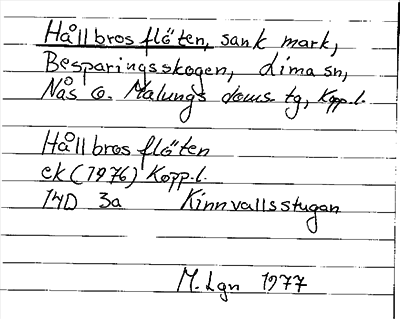 Hållbrosflöten, sank mark,
Besparingsskogen, Lima sn,
Nås o. Malungs doms. tg, Kopp.l.
Hållbrosflöten
ek (1976) Kopp.l.
14D 3a Kinnvallsstugan
M. Lgn 1977